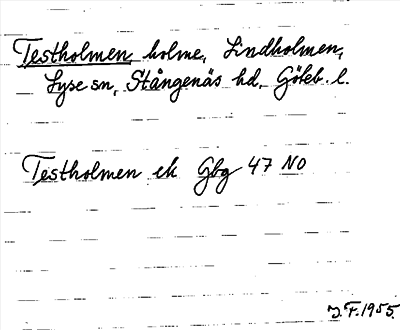 Testholmen holme, Lindholmen,
Lyse sn, Stångenäs hd, Göteb. l.
Testholmen ek Gbg 47 NO
J. F. 1955.